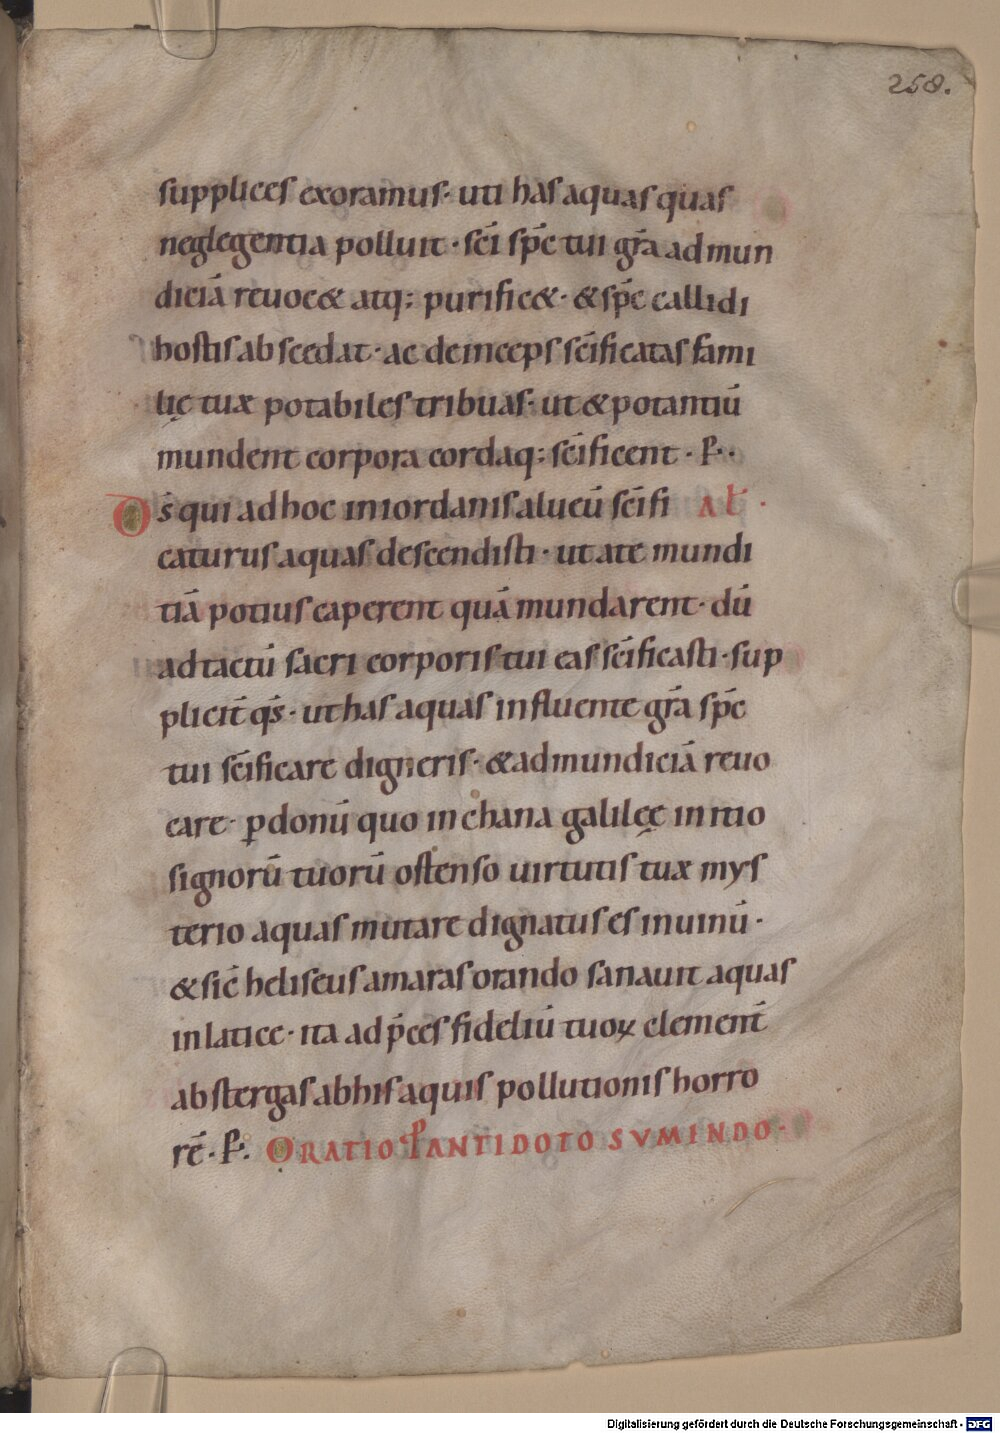 258.
supplices exoramus· uti has aquas quas
neglegentia polluit· scī sp̄c tui gr̄a admun
diciā reuoc& atq; purific&· & sp̄c callidi
hostis abscedat· ac deinceps scīficatas fami
lię tuæ potabiles tribuas· ut & potantiū
mundent corpora cordaq; scīficent· P̱··
Ds̄ qui ad hoc in iordanis alueū scīfi Al̄·
caturus aquas descendisti· ut a te mundi
tiā potius caperent quā mundarent· dū
ad tactū sacri corporis tui eas scīficasti· sup
plicit̄ qs̄· ut has aquas influente gr̄a sp̄c
tui scīficare digneris· & ad mundiciā reuo
care· ꝑ donū quo in chana galileę initio
signorū tuorū ostenso uirtutis tuæ mys
terio aquas mutare dignatus es in uinū·
& sic̄ heliseus amaras orando sanauit aquas
in latice· ita ad p̄ces fideliū tuoꝝ element̄
abstergas ab his aquis pollutionis horro
rē· P̱· ORATIO P̄ ANTIDOTO SVMENDO·
Digitalisierung gefördert durch die Deutsche Forschungsgemeinschaft - DFG